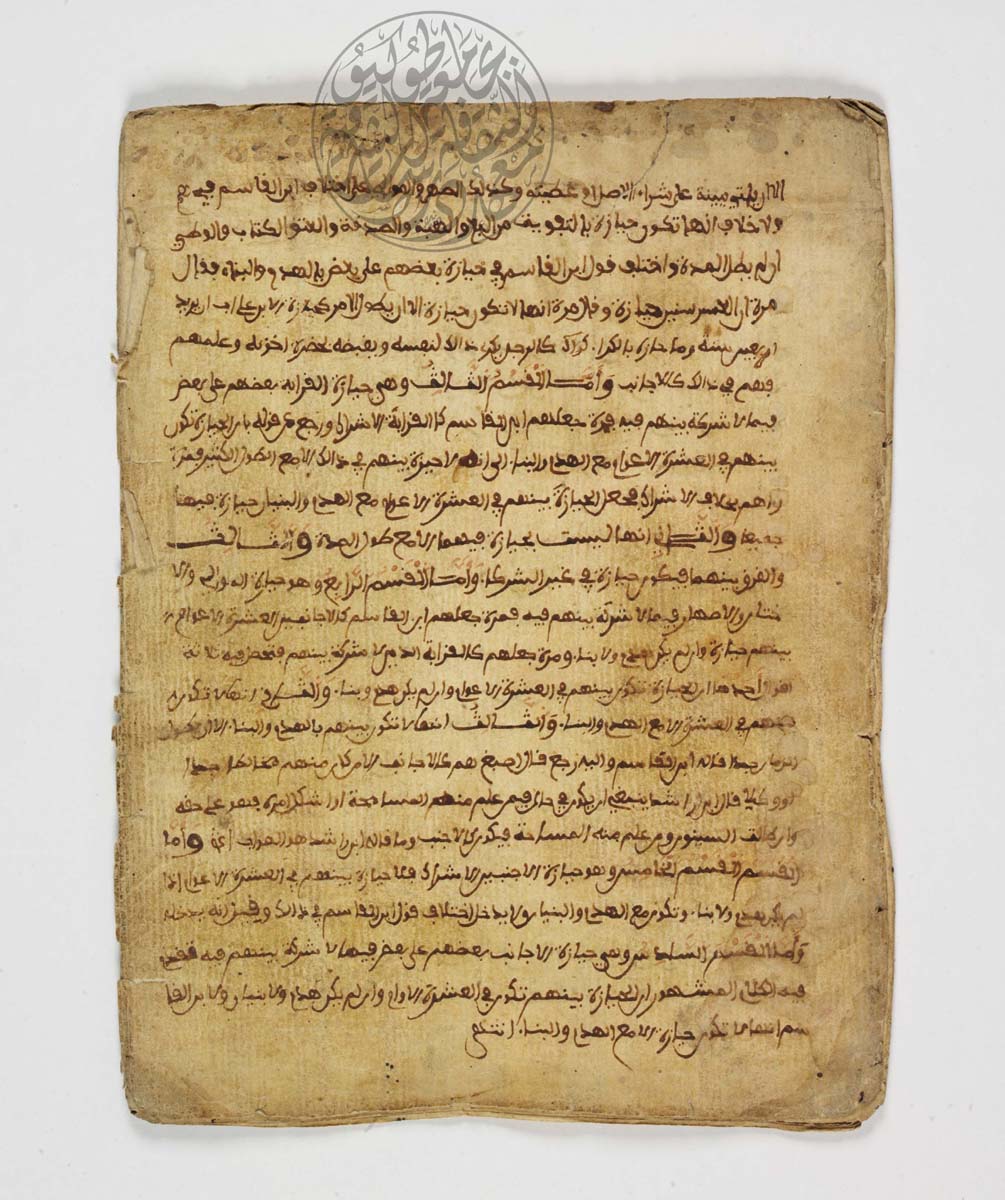 الا ان ياتي ببينة على شراء الاصل او عطيته وكذلك الصهر والمولى على اختلاف ابن القاسم في
ولا خلاف انها تكون حيازة بالتفويت من البيع والهبة والصدقة والعتق والكتاب والوطئ
ان لم يطل المدة واختلف قول ابن القاسم في حيازة بعضهم على بعض بالهدم والبناء فقال
مرة ان العشر سنين حيازة وقال مرة انها لا تكون حيازة الا ان يطول الامر كحيازة الابن على اب ان يزيد
اربعين سنة وما حازه بالكراء كذلك كالرجل يكري ذالك لنفسه ويقبضه بحضرة اخوته وعلمهم
فهم في ذالك كالاجانب وَأَمَّا الْقِسْمُ الثالث وهي حيازة القرابة بعضهم على بعض
فيما لا شركة بينهم فيه فمرة جعلهم ابن القاسم كالقرابة الاشراك ورجع عن قوله بان الحيازة تكون
بينهم في العشرة الاعوام مع الهدم والبناء الى انه لا حيزة بينهم في ذالك الا مع الطول الكثير ومرة
راهم بخلاف الاشراك فجعل الحيازة بينهم في العشرة الاعوام مع الهدم والبنيان حيازة فيهما
جميعا والثـاني انها ليست بحيازة فيهما الا مع طول المدة والثالث
والفرق بينهما فيكون حيازة في غير الشركاء وَأَمَّا الْقِسْمُ الرَّابِعُ وهو حيازة الموالي والا
ختان والاصهار فيما لا شركة بينهم فيه فمرة جعلهم ابن القاسم كالاجانب العشرة الاعوام
بينهم حيازة وان لم يكن هدم ولا بناء ومرة جعلهم كالقرابة الذين لا شركة بينهم فتحصل فيه ثلاثة
اقوال أحدها ان الحيازة تكون بينهم في العشرة الاعوام وان لم يكن هدم وبناء والثاني انها لا تكون
بينهم في العشرة الا مع الهدم والبناء والثالث انها لا تكون بينهم بالهدم والبناء الا ان يطول
الزمان جدا قاله ابن القاسم واليه رجع قال اصبغ هم كالاجانب الا من كان منهم مخالطا جدا
او وكيلا قال ابن راشد ينبغي ان يكون في حال فيمن علم منهم المسامحة او اشكل امره فهو على حقه
وان طالت السنون ومن علم منه المساحة فيكون كالاجنب وما قاله ابن راشد هو الصواب واما
القسم الْقِسْم الخامس وهو حيازة الاجنبيين الاشراك فلا حيازة بينهم في العشرة الاعوام اذا
لم يكن هدم ولا بناء وتكون مع الهدم والبنيان ولا يدخل اختلاف قول ابن القاسم في ذالك وقيل انه يدخله
وَأَمَّا الْقِسْم السادس وهي حيازة الاجانب بعضهم على بعض فيما لا شركة بينهم فيه ففي
فيه الكلام المشهور ان الحيازة بينهم تكون في العشرة الاعوام وان لم يكن هدم ولا بنيان ولابن القا
سم انها لا تكون حيازة الا مع الهدم والبناء انتهى